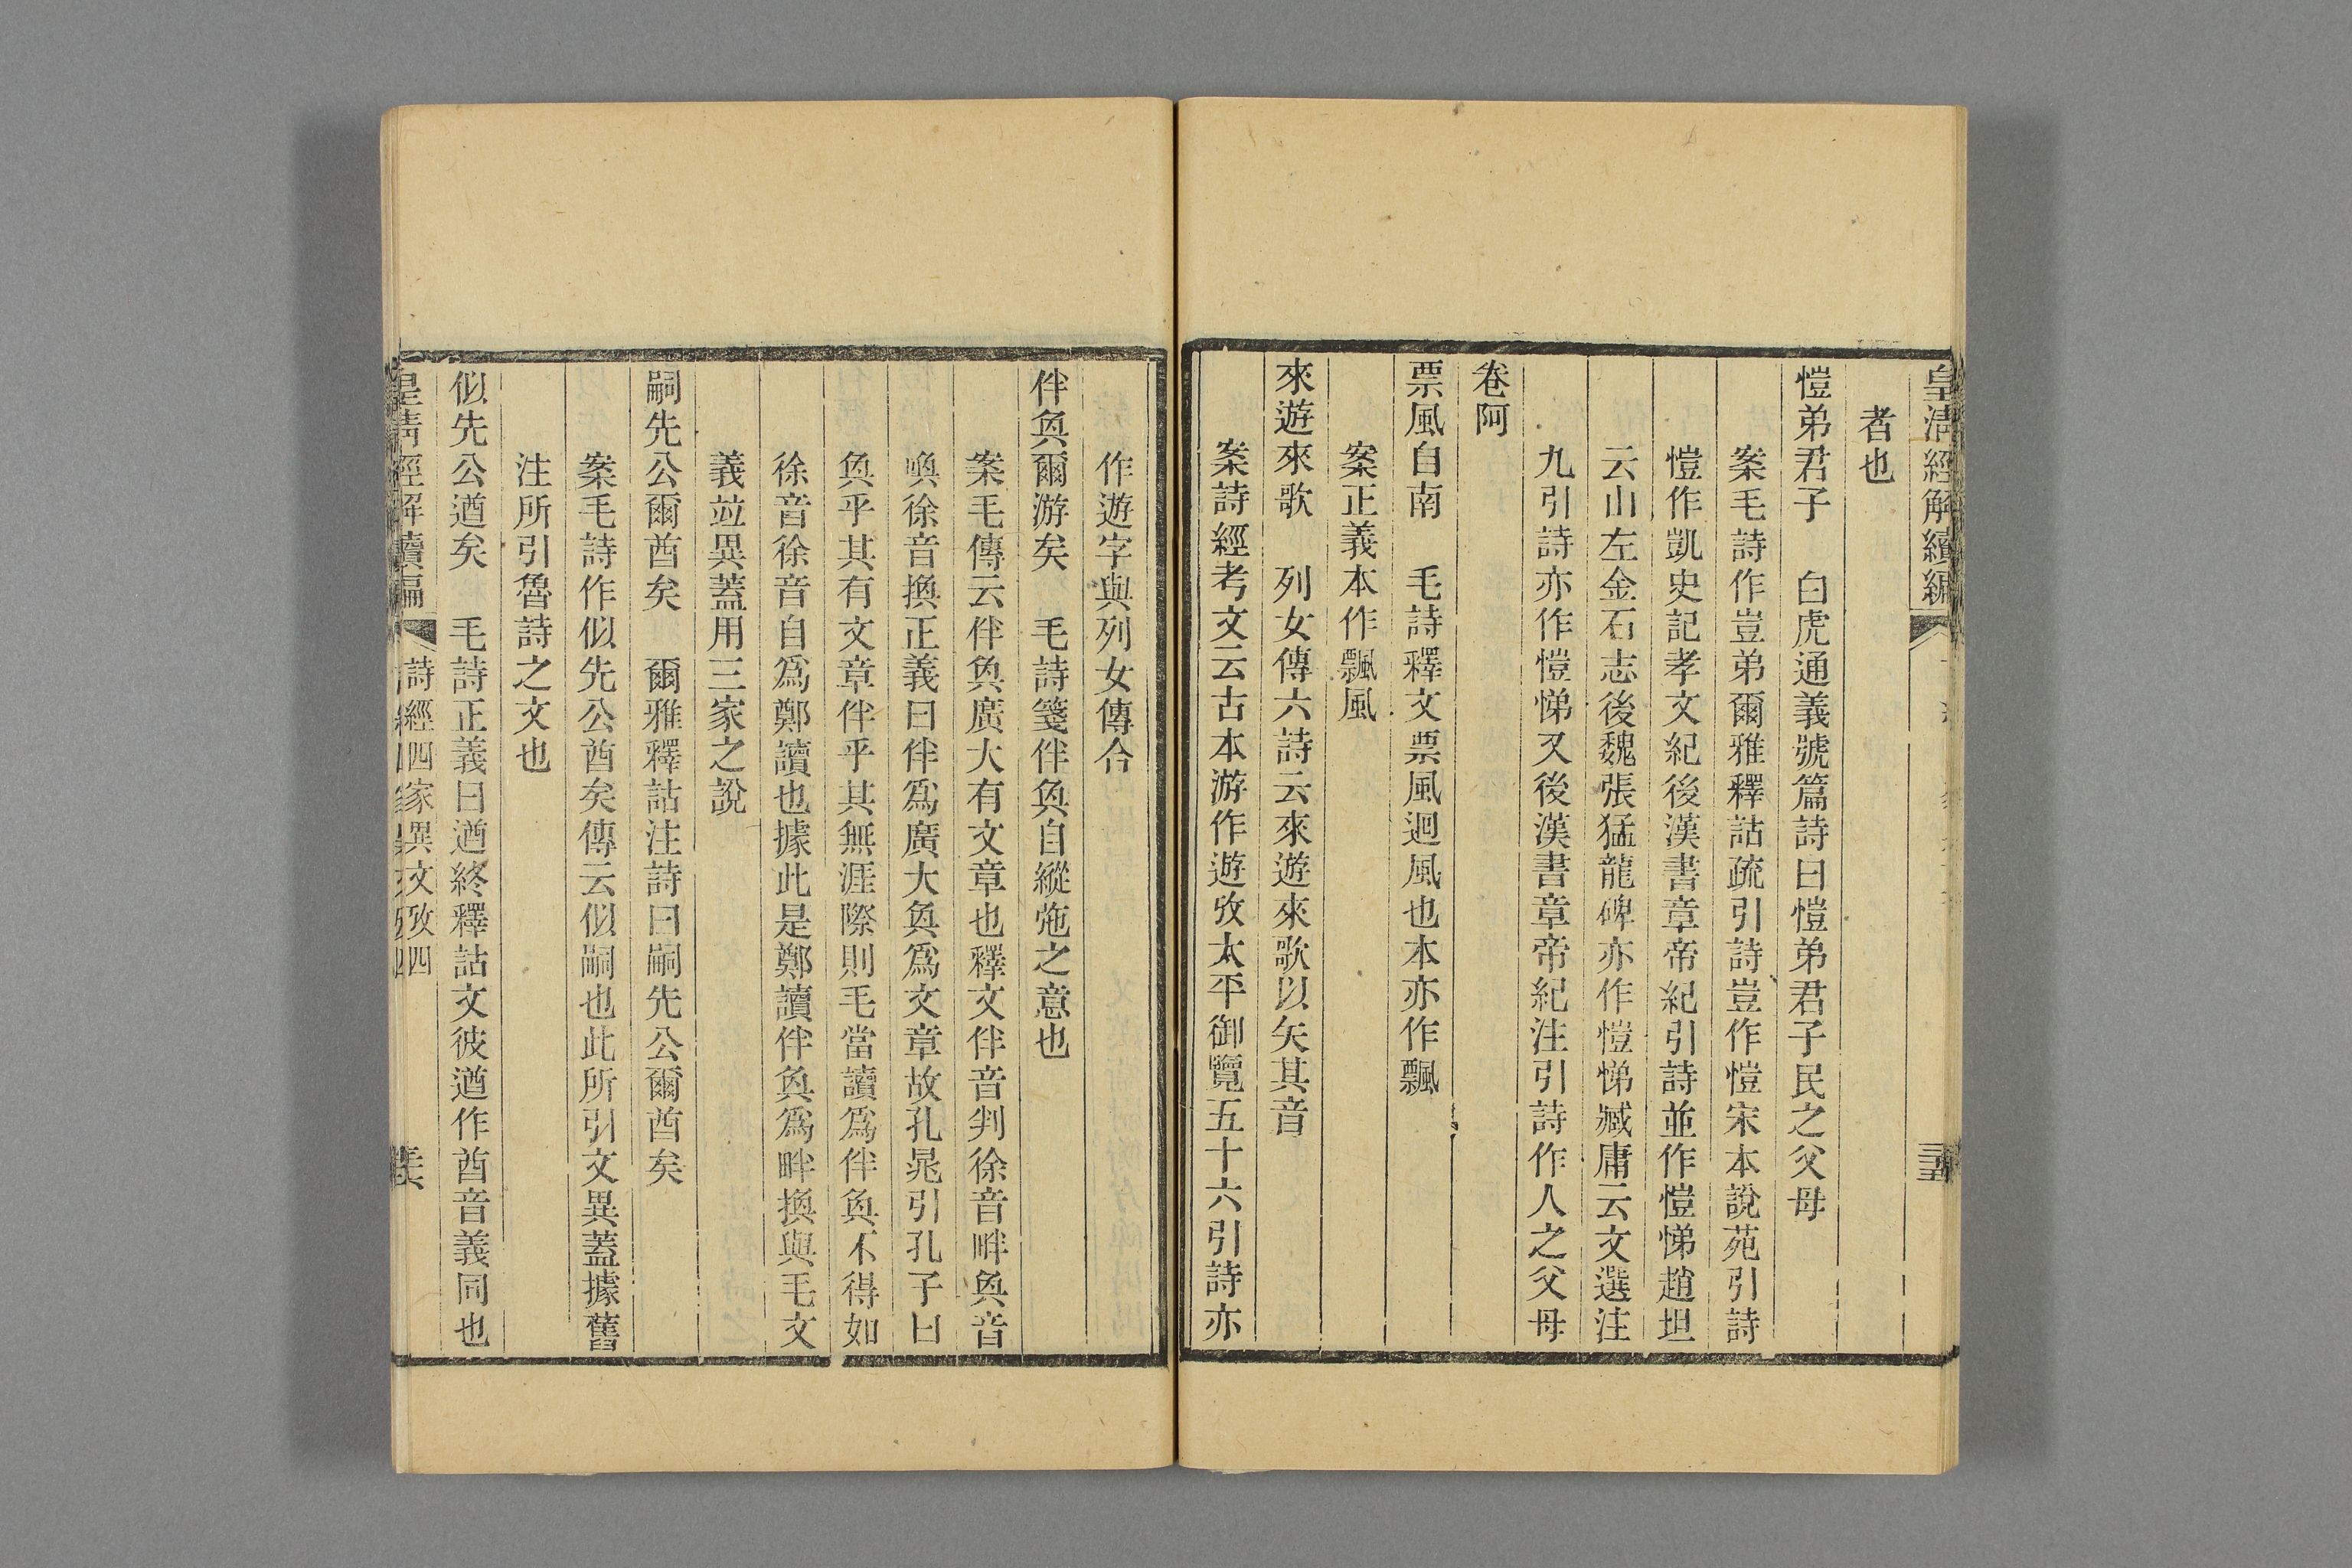 皇清經解續編
者也
愷弟君子　白虎通義號篇詩曰愷弟君子民之父母
案毛詩作豈弟爾雅釋詁疏引詩豈作愷宋本說苑引詩
愷作凱史記孝文紀後漢書章帝紀引詩並作愷悌趙坦
云山左金石志後魏張猛龍碑亦作愷悌臧庸云文選注
九引詩亦作愷悌又後漢書章帝紀注引詩作人之父母
卷阿
票風自南　毛詩釋文票風迴風也本亦作飄
案正義本作飄風
來遊來歌　列女傳六詩云來遊來歌以矢其音
案詩經考文云古本游作遊攷太平御覽五十六引詩亦
作遊字與列女傳合
伴奐爾游矣　毛詩箋伴奐自縱弛之意也
案毛傳云伴奐廣大有文章也釋文伴音判徐音畔奐音
喚徐音換正義曰伴爲廣大奐爲文章故孔晁引孔子曰
奐乎其有文章伴乎其無涯際則毛當讀爲伴奐不得如
徐音徐音自爲鄭讀也據此是鄭讀伴奐爲畔換與毛文
義竝異蓋用三家之說
嗣先公爾酋矣　爾雅釋詁注詩曰嗣先公爾酋矣
案毛詩作似先公酋矣傳云似嗣也此所引文異蓋據舊
注所引魯詩之文也
似先公遒矣　毛詩正義曰遒終釋詁文彼遒作酋音義同也
皇清經解續編　詩經四家異文攷四